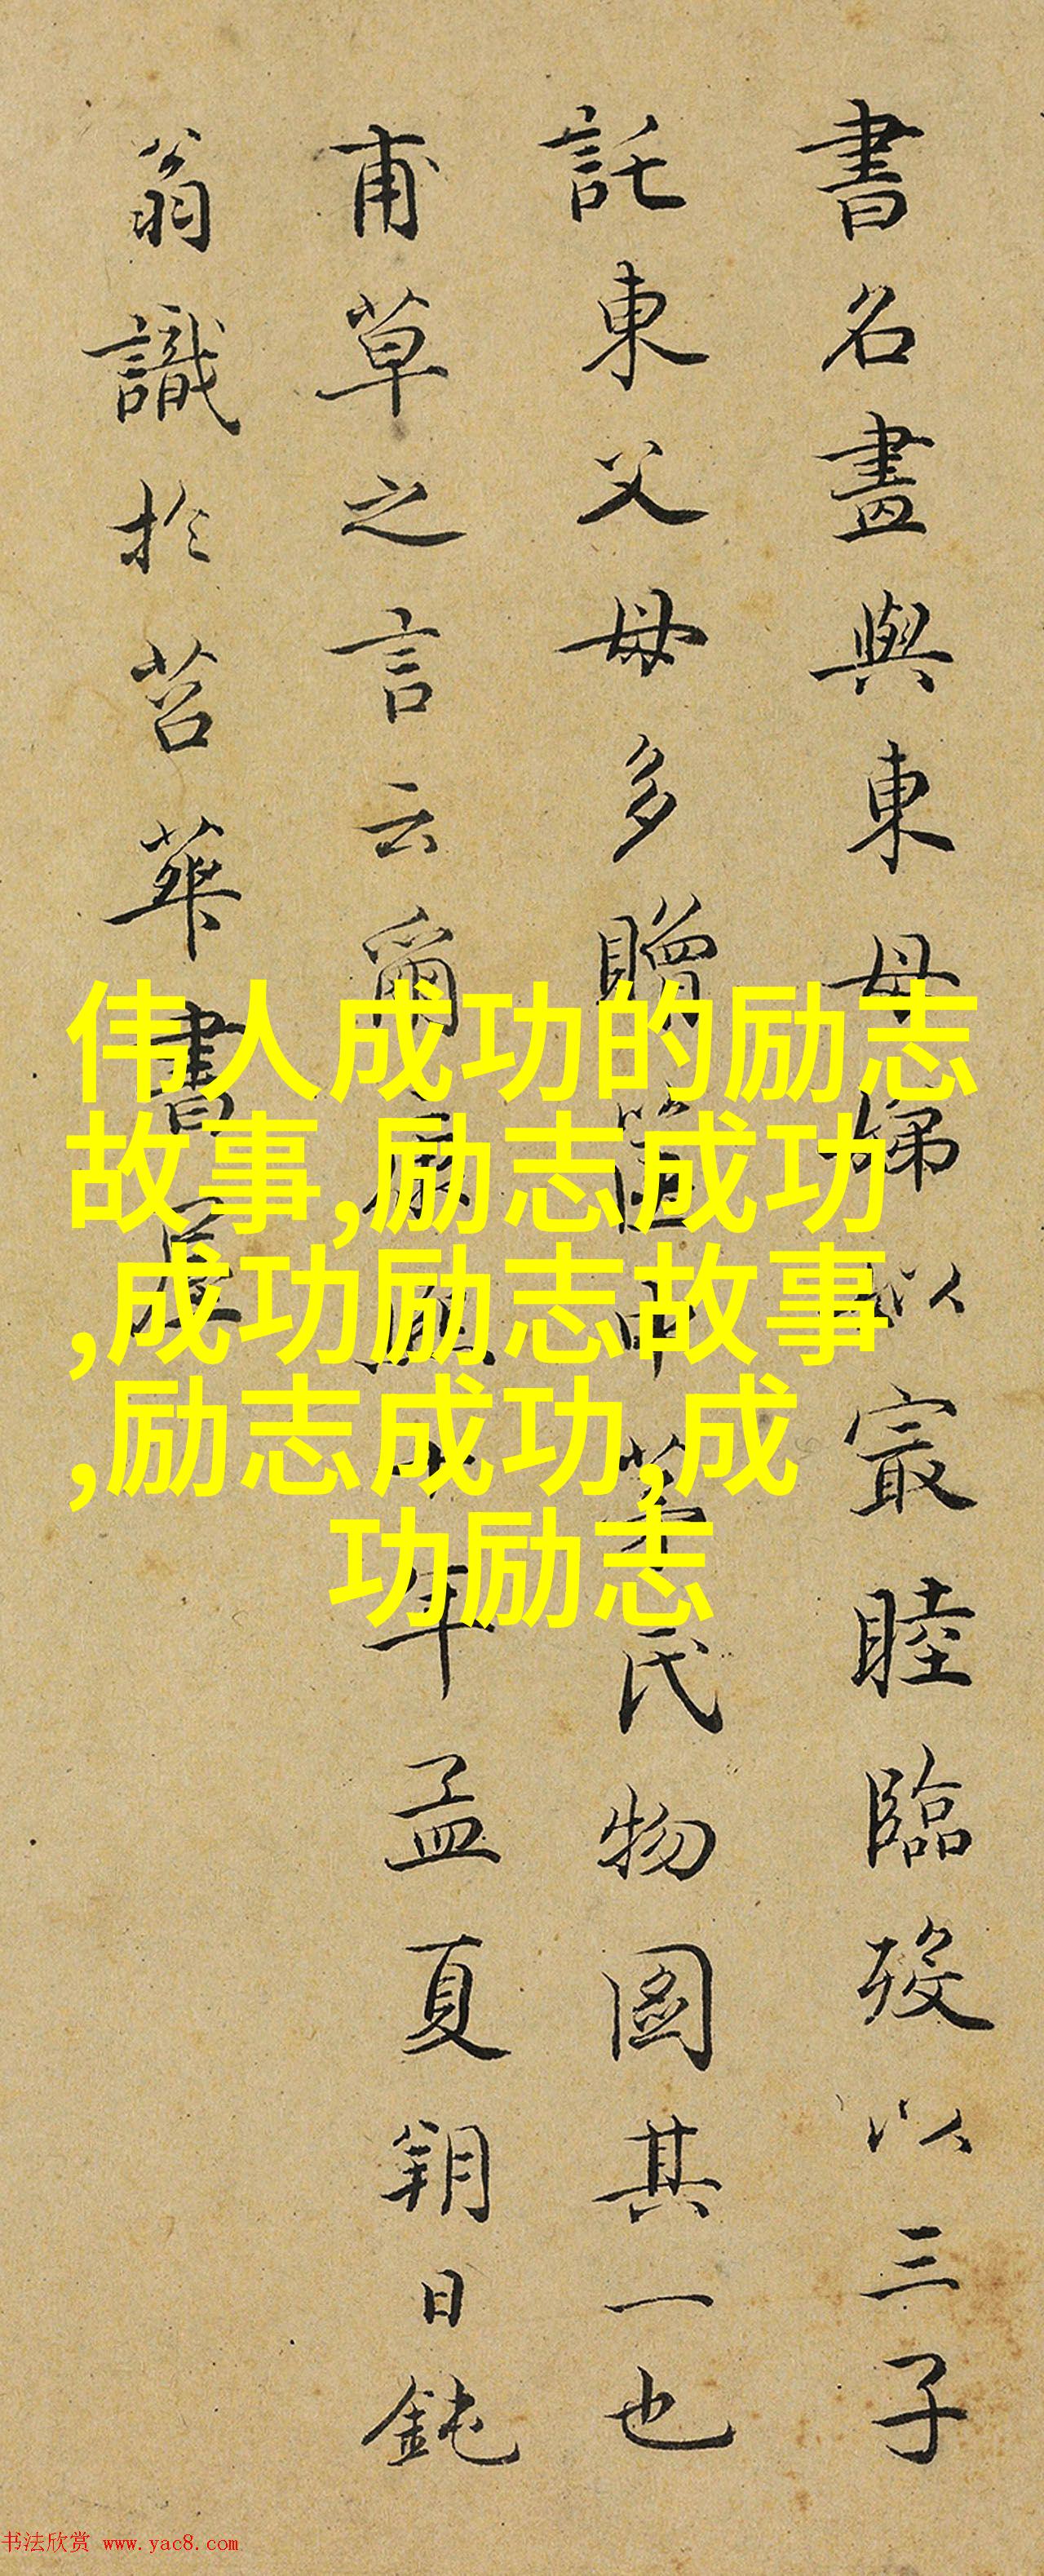 書名畫與東母娣以寂睦臨歿以三子
託東父母多贈篋中茅氏物圖其一也
甫草之言云爾康願十年孟夏朔日鈍
翁識於苕華書屋
伟人成功的励志
故事,励志成功
,成功励志故事
,励志成功,成
功励志
书法欣赏 www.yac8.com